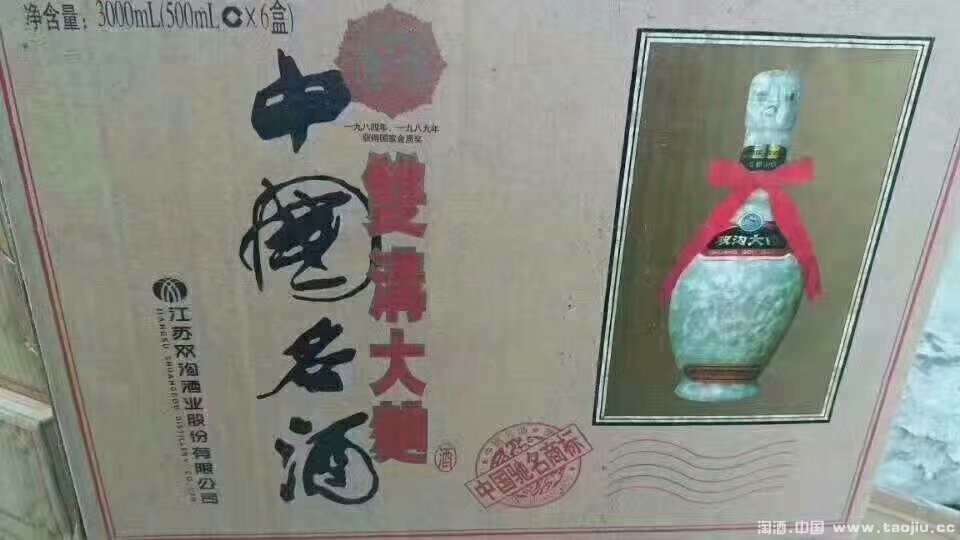 净含量：3000mL(500mL×6盒)
中國名酒
一九八四年、一九八九年
获得国家金质奖
雙溝大麯
酒
江苏双沟酒业股份有限公司
JIANGSU SHUANGGOU DISTILLERY CO., LTD
双沟大曲
中国驰名商标
淘酒.中国 www.taojiu.cc